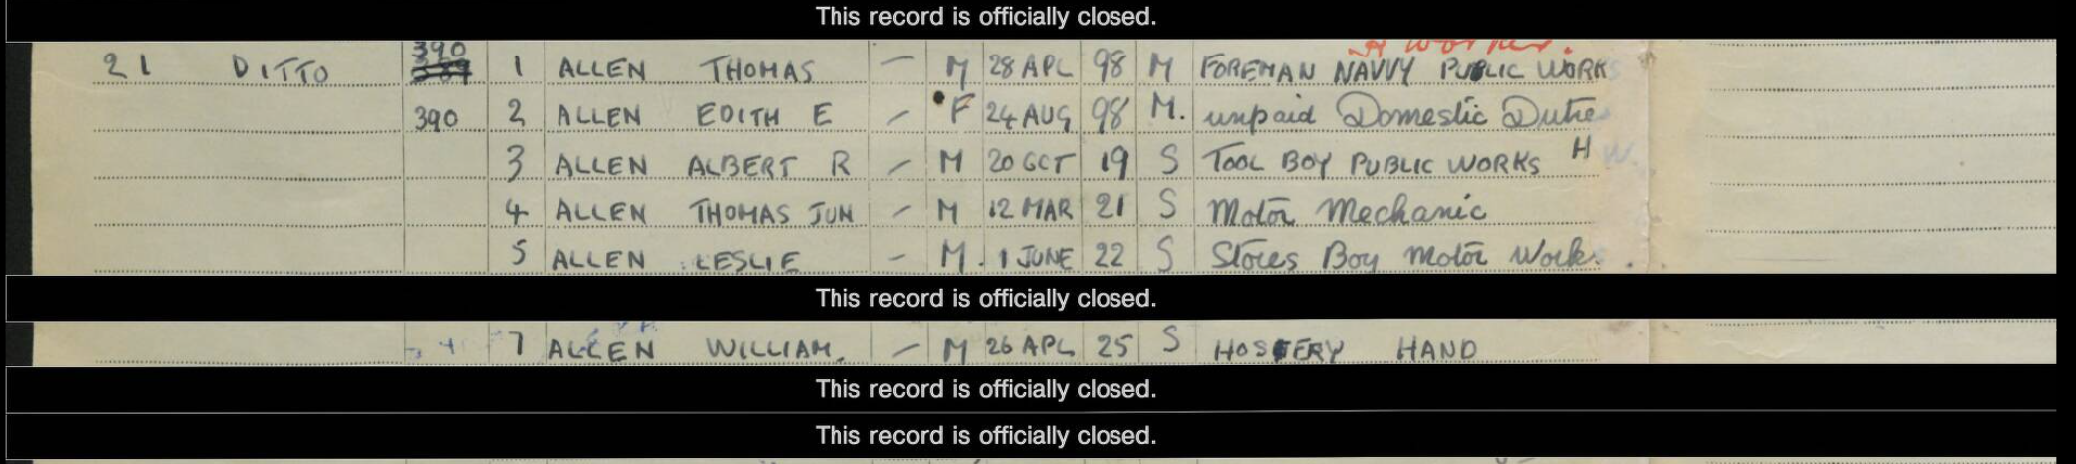 This record is officially closed.
H Worker.
21 DITTO 390 389 1 ALLEN THOMAS — M 28 APL 98 M FOREMAN NAVVY PUBLIC WORKS
390 2 ALLEN EDITH E – F 24 AUG 98 M. unpaid Domestic Duties
3 ALLEN ALBERT R – M 20 OCT 19 S TOOL BOY PUBLIC WORKS H W.
4 ALLEN THOMAS JUN – M 12 MAR 21 S Motor Mechanic
5 ALLEN LESLIE – M. 1 JUNE 22 S Stores Boy Motor Works.
This record is officially closed.
7 ALLEN WILLIAM. – M 26 APL 25 S HOSIERY HAND
This record is officially closed.
This record is officially closed.